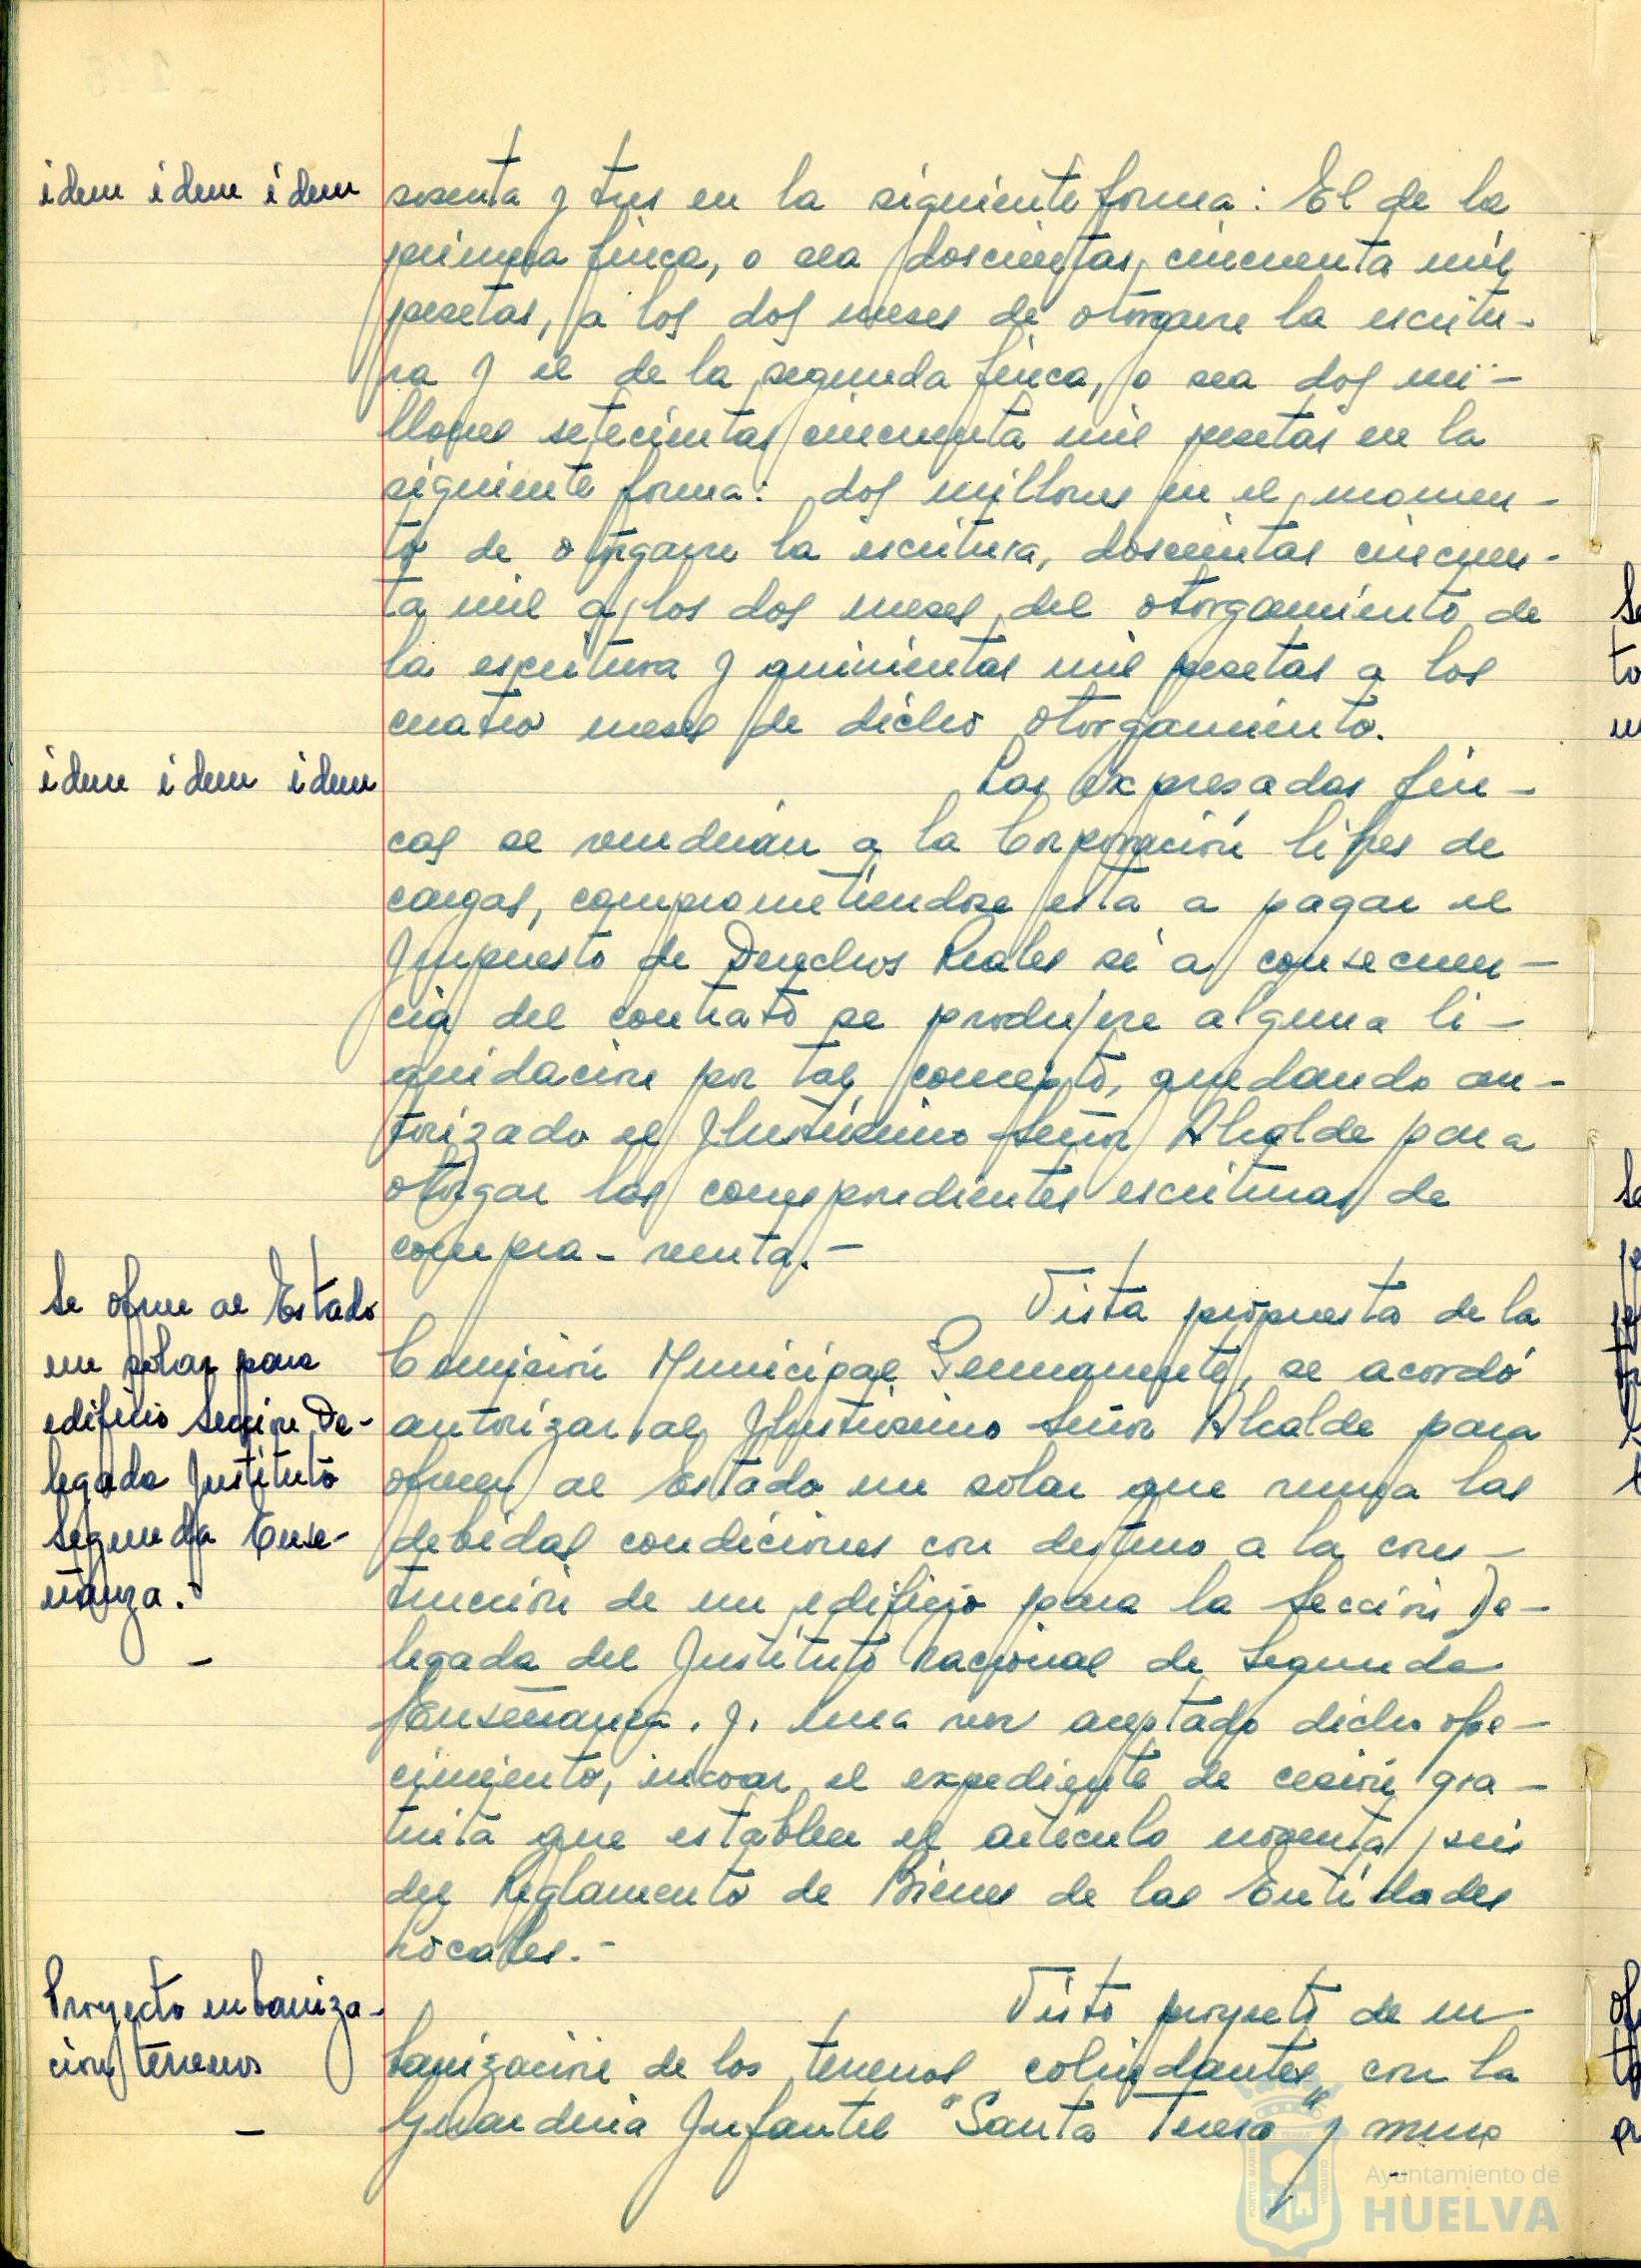 idem idem idem
sesenta y tres en la siguiente forma: El de la
primera finca, o sea doscientas cincuenta mil
pesetas, a los dos meses de otorgarse la escritu-
ra y el de la segunda finca, o sea dos mi-
llones setecientas cincuenta mil pesetas en la
siguiente forma: dos millones en el momen-
to de otorgarse la escritura, doscientas cincuen-
ta mil a los dos meses del otorgamiento de
la escritura y quinientas mil pesetas a los
cuatro meses de dicho otorgamiento.
idem idem idem
Las expresadas fin-
cas se venderán a la Corporación libres de
cargas, comprometiendose esta a pagar el
Impuesto de Derechos Reales si a consecuen-
cia del contrato se produjere alguna li-
quidación por tal concepto, quedando au-
torizado el Ilustrísimo Señor Alcalde para
otorgar las correspondientes escrituras de
compra-venta.-
Se ofrece al Estado
un solar para
edificio Sección De-
legada Instituto
Segunda Ense-
ñanza.-
Vista propuesta de la
Comisión Municipal Permanente, se acordó
autorizar al Ilustrísimo Señor Alcalde para
ofrecer al Estado un solar que reuna las
debidas condiciones con destino a la cons-
trucción de un edificio para la Sección De-
legada del Instituto Nacional de Segunda
Enseñanza. y, una vez aceptado dicho ofre-
cimiento, incoar el expediente de cesión gra-
tuita que establece el artículo noventa y seis
del Reglamento de Bienes de las Entidades
Locales.-
Proyecto urbaniza-
ción terrenos
Visto proyecto de ur-
banización de los terrenos colindantes con la
Guardería Infantil "Santa Teresa" y muro
Ayuntamiento de
HUELVA